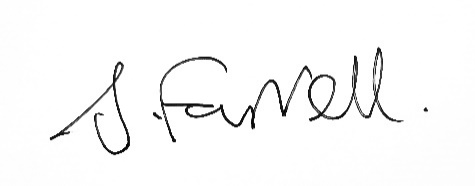 J. Farrell.